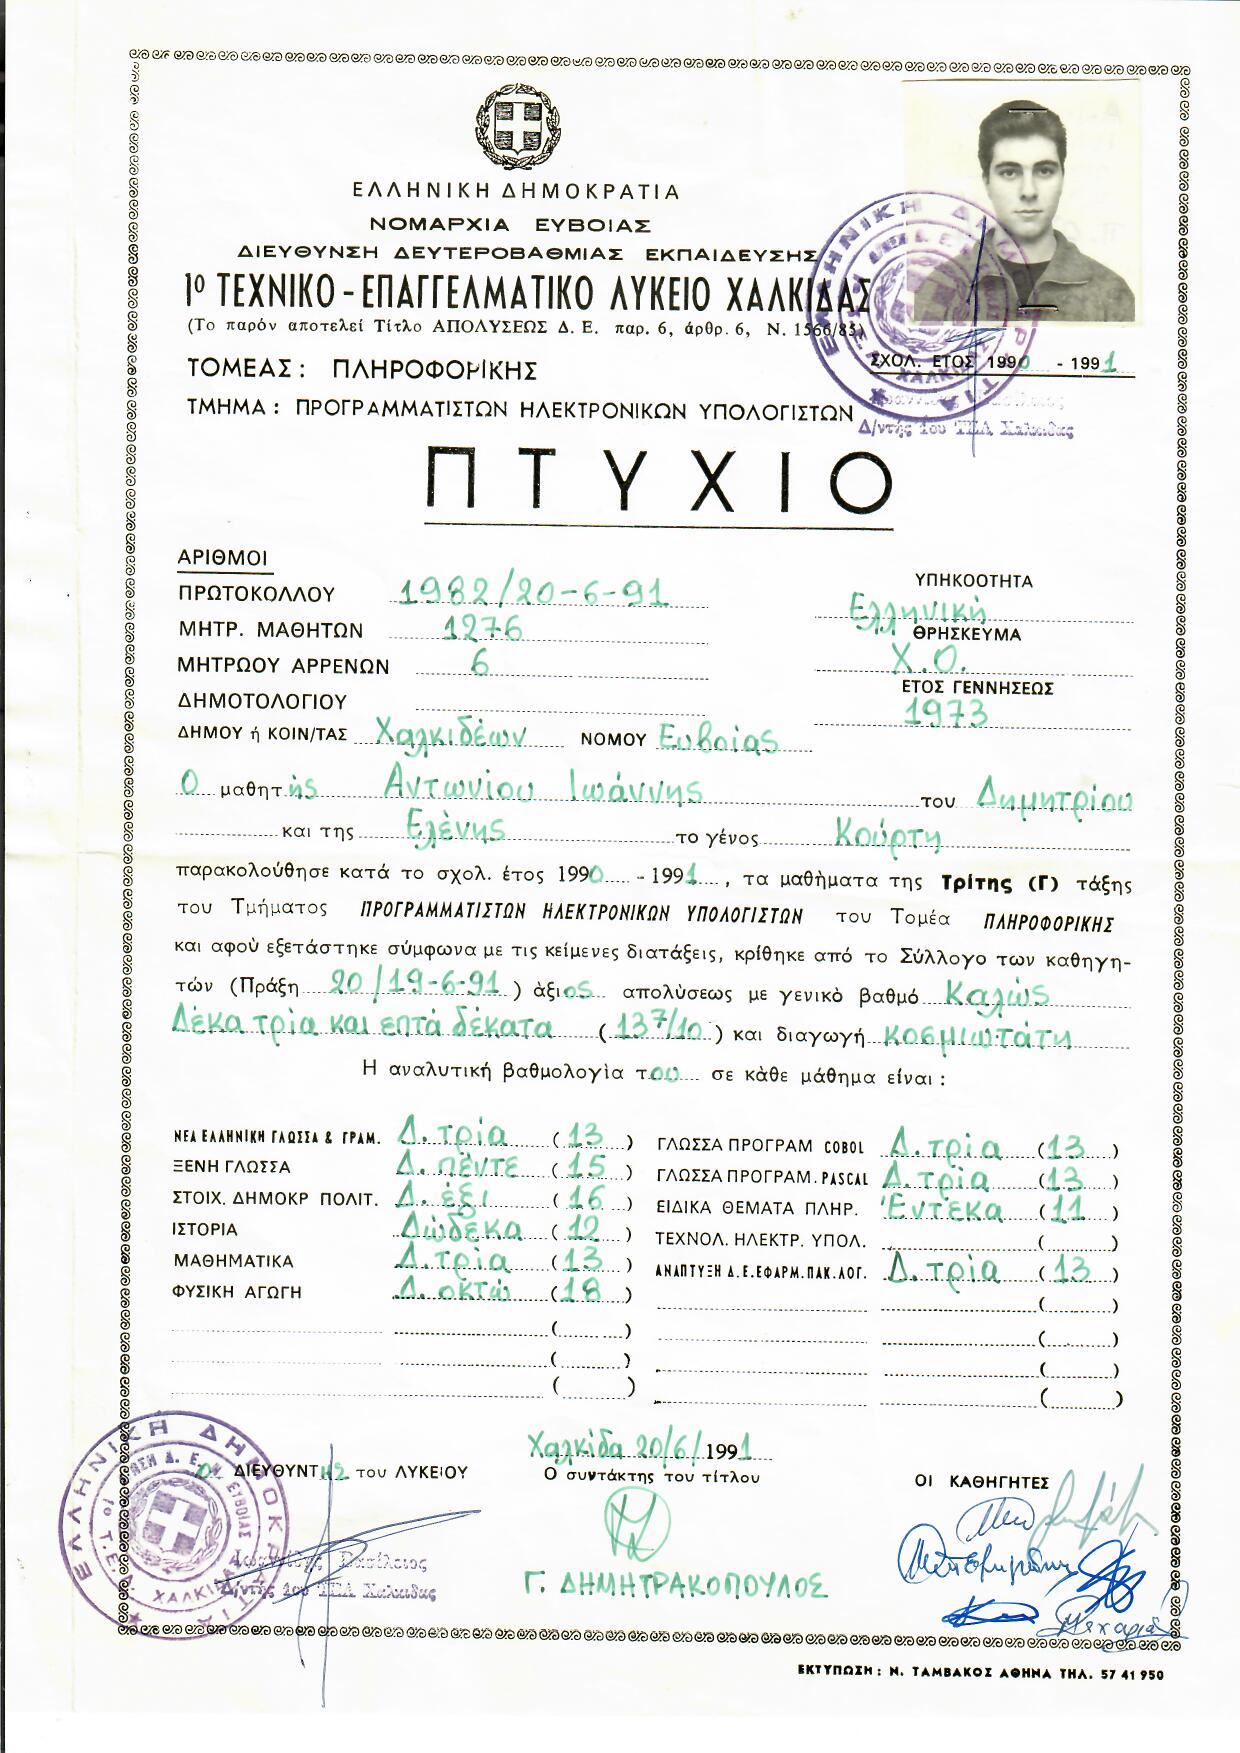 ΕΛΛΗΝΙΚΗ ΔΗΜΟΚΡΑΤΙΑ
ΝΟΜΑΡΧΙΑ ΕΥΒΟΙΑΣ
ΔΙΕΥΘΥΝΣΗ ΔΕΥΤΕΡΟΒΑΘΜΙΑΣ ΕΚΠΑΙΔΕΥΣΗΣ
1ο ΤΕΧΝΙΚΟ - ΕΠΑΓΓΕΛΜΑΤΙΚΟ ΛΥΚΕΙΟ ΧΑΛΚΙΔΑΣ
(Το παρόν αποτελεί Τίτλο ΑΠΟΛΥΣΕΩΣ Δ. Ε. παρ. 6, άρθρ. 6, Ν. 1566/85)
ΤΟΜΕΑΣ : ΠΛΗΡΟΦΟΡΙΚΗΣ
ΣΧΟΛ. ΕΤΟΣ 1990 - 1991
ΤΜΗΜΑ : ΠΡΟΓΡΑΜΜΑΤΙΣΤΩΝ ΗΛΕΚΤΡΟΝΙΚΩΝ ΥΠΟΛΟΓΙΣΤΩΝ
Δ/ντής 1ου ΤΕΛ Χαλκίδας
ΠΤΥΧΙΟ
ΑΡΙΘΜΟΙ
ΠΡΩΤΟΚΟΛΛΟΥ 1982/20-6-91
ΜΗΤΡ. ΜΑΘΗΤΩΝ 1276
ΜΗΤΡΩΟΥ ΑΡΡΕΝΩΝ 6
ΔΗΜΟΤΟΛΟΓΙΟΥ
ΥΠΗΚΟΟΤΗΤΑ
Ελληνική
ΘΡΗΣΚΕΥΜΑ
Χ.Ο.
ΕΤΟΣ ΓΕΝΝΗΣΕΩΣ
1973
ΔΗΜΟΥ ή ΚΟΙΝ/ΤΑΣ Χαλκιδέων ΝΟΜΟΥ Ευβοίας
Ο μαθητής Αντωνίου Ιωάννης του Δημητρίου
και της Ελένης το γένος Κούρτη
παρακολούθησε κατά το σχολ. έτος 1990 - 1991, τα μαθήματα της Τρίτης (Γ) τάξης
του Τμήματος ΠΡΟΓΡΑΜΜΑΤΙΣΤΩΝ ΗΛΕΚΤΡΟΝΙΚΩΝ ΥΠΟΛΟΓΙΣΤΩΝ του Τομέα ΠΛΗΡΟΦΟΡΙΚΗΣ
και αφού εξετάστηκε σύμφωνα με τις κείμενες διατάξεις, κρίθηκε από το Σύλλογο των καθηγη-
τών (Πράξη 20/19-6-91) άξιος απολύσεως με γενικό βαθμό Καλώς
Δέκα τρία και επτά δέκατα (13 7/10) και διαγωγή κοσμιωτάτη
Η αναλυτική βαθμολογία του σε κάθε μάθημα είναι :
ΝΕΑ ΕΛΛΗΝΙΚΗ ΓΛΩΣΣΑ & ΓΡΑΜ. Δ. τρία (13)
ΞΕΝΗ ΓΛΩΣΣΑ Δ. πέντε (15)
ΣΤΟΙΧ. ΔΗΜΟΚΡ ΠΟΛΙΤ. Δ. έξι (16)
ΙΣΤΟΡΙΑ Δώδεκα (12)
ΜΑΘΗΜΑΤΙΚΑ Δ. τρία (13)
ΦΥΣΙΚΗ ΑΓΩΓΗ Δ. οκτώ (18)
ΓΛΩΣΣΑ ΠΡΟΓΡΑΜ COBOL Δ. τρία (13)
ΓΛΩΣΣΑ ΠΡΟΓΡΑΜ. PASCAL Δ. τρία (13)
ΕΙΔΙΚΑ ΘΕΜΑΤΑ ΠΛΗΡ. Έντεκα (11)
ΤΕΧΝΟΛ. ΗΛΕΚΤΡ. ΥΠΟΛ. ( )
ΑΝΑΠΤΥΞΗ Δ. Ε. ΕΦΑΡΜ. ΠΑΚ. ΛΟΓ. Δ. τρία (13)
Χαλκίδα 20/6/1991
Ο ΔΙΕΥΘΥΝΤΗΣ του ΛΥΚΕΙΟΥ
Ο συντάκτης του τίτλου
ΟΙ ΚΑΘΗΓΗΤΕΣ
Ιωαννίδης Βασίλειος
Δ/ντής 1ου ΤΕΛ Χαλκίδας
Γ. ΔΗΜΗΤΡΑΚΟΠΟΥΛΟΣ
ΕΛΛΗΝΙΚΗ ΔΗΜΟΚΡΑΤΙΑ
1ο Τ.Ε.Λ. ΧΑΛΚΙΔΑΣ
ΕΚΤΥΠΩΣΗ : Ν. ΤΑΜΒΑΚΟΣ ΑΘΗΝΑ ΤΗΛ. 57 41 950